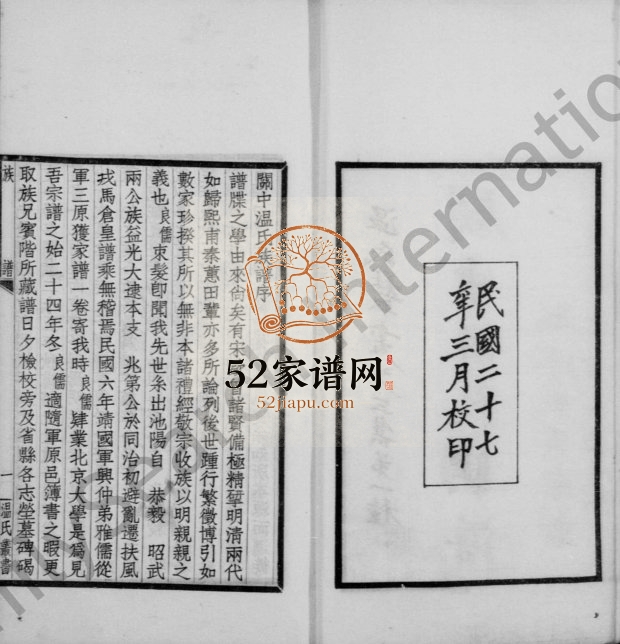 民國二十七
年三月校印
關中温氏族譜序
譜牒之學由來尚矣有宋 諸賢備極精揅明清兩代
如歸熙甫秦蕙田輩亦多所論列後世踵行繁徵博引如
數家珍揆其所以無非本諸禮經敬宗收族以明親親之
義也良儒束髮即聞我先世系出池陽自 恭毅 昭武
兩公族益光大逮本支 兆第公於同治初避亂遷扶風
戎馬倉皇譜乘無稽焉民國六年靖國軍興仲弟雅儒從
軍三原獲家譜一卷寄我時良儒肄業北京大學是爲見
吾宗譜之始二十四年冬良儒適隨軍原邑簿書之暇更
取族兄賓階所藏譜日夕檢校旁及省縣各志塋墓碑碣
族 譜
一
温氏叢書
52家谱网
52jiapu.com